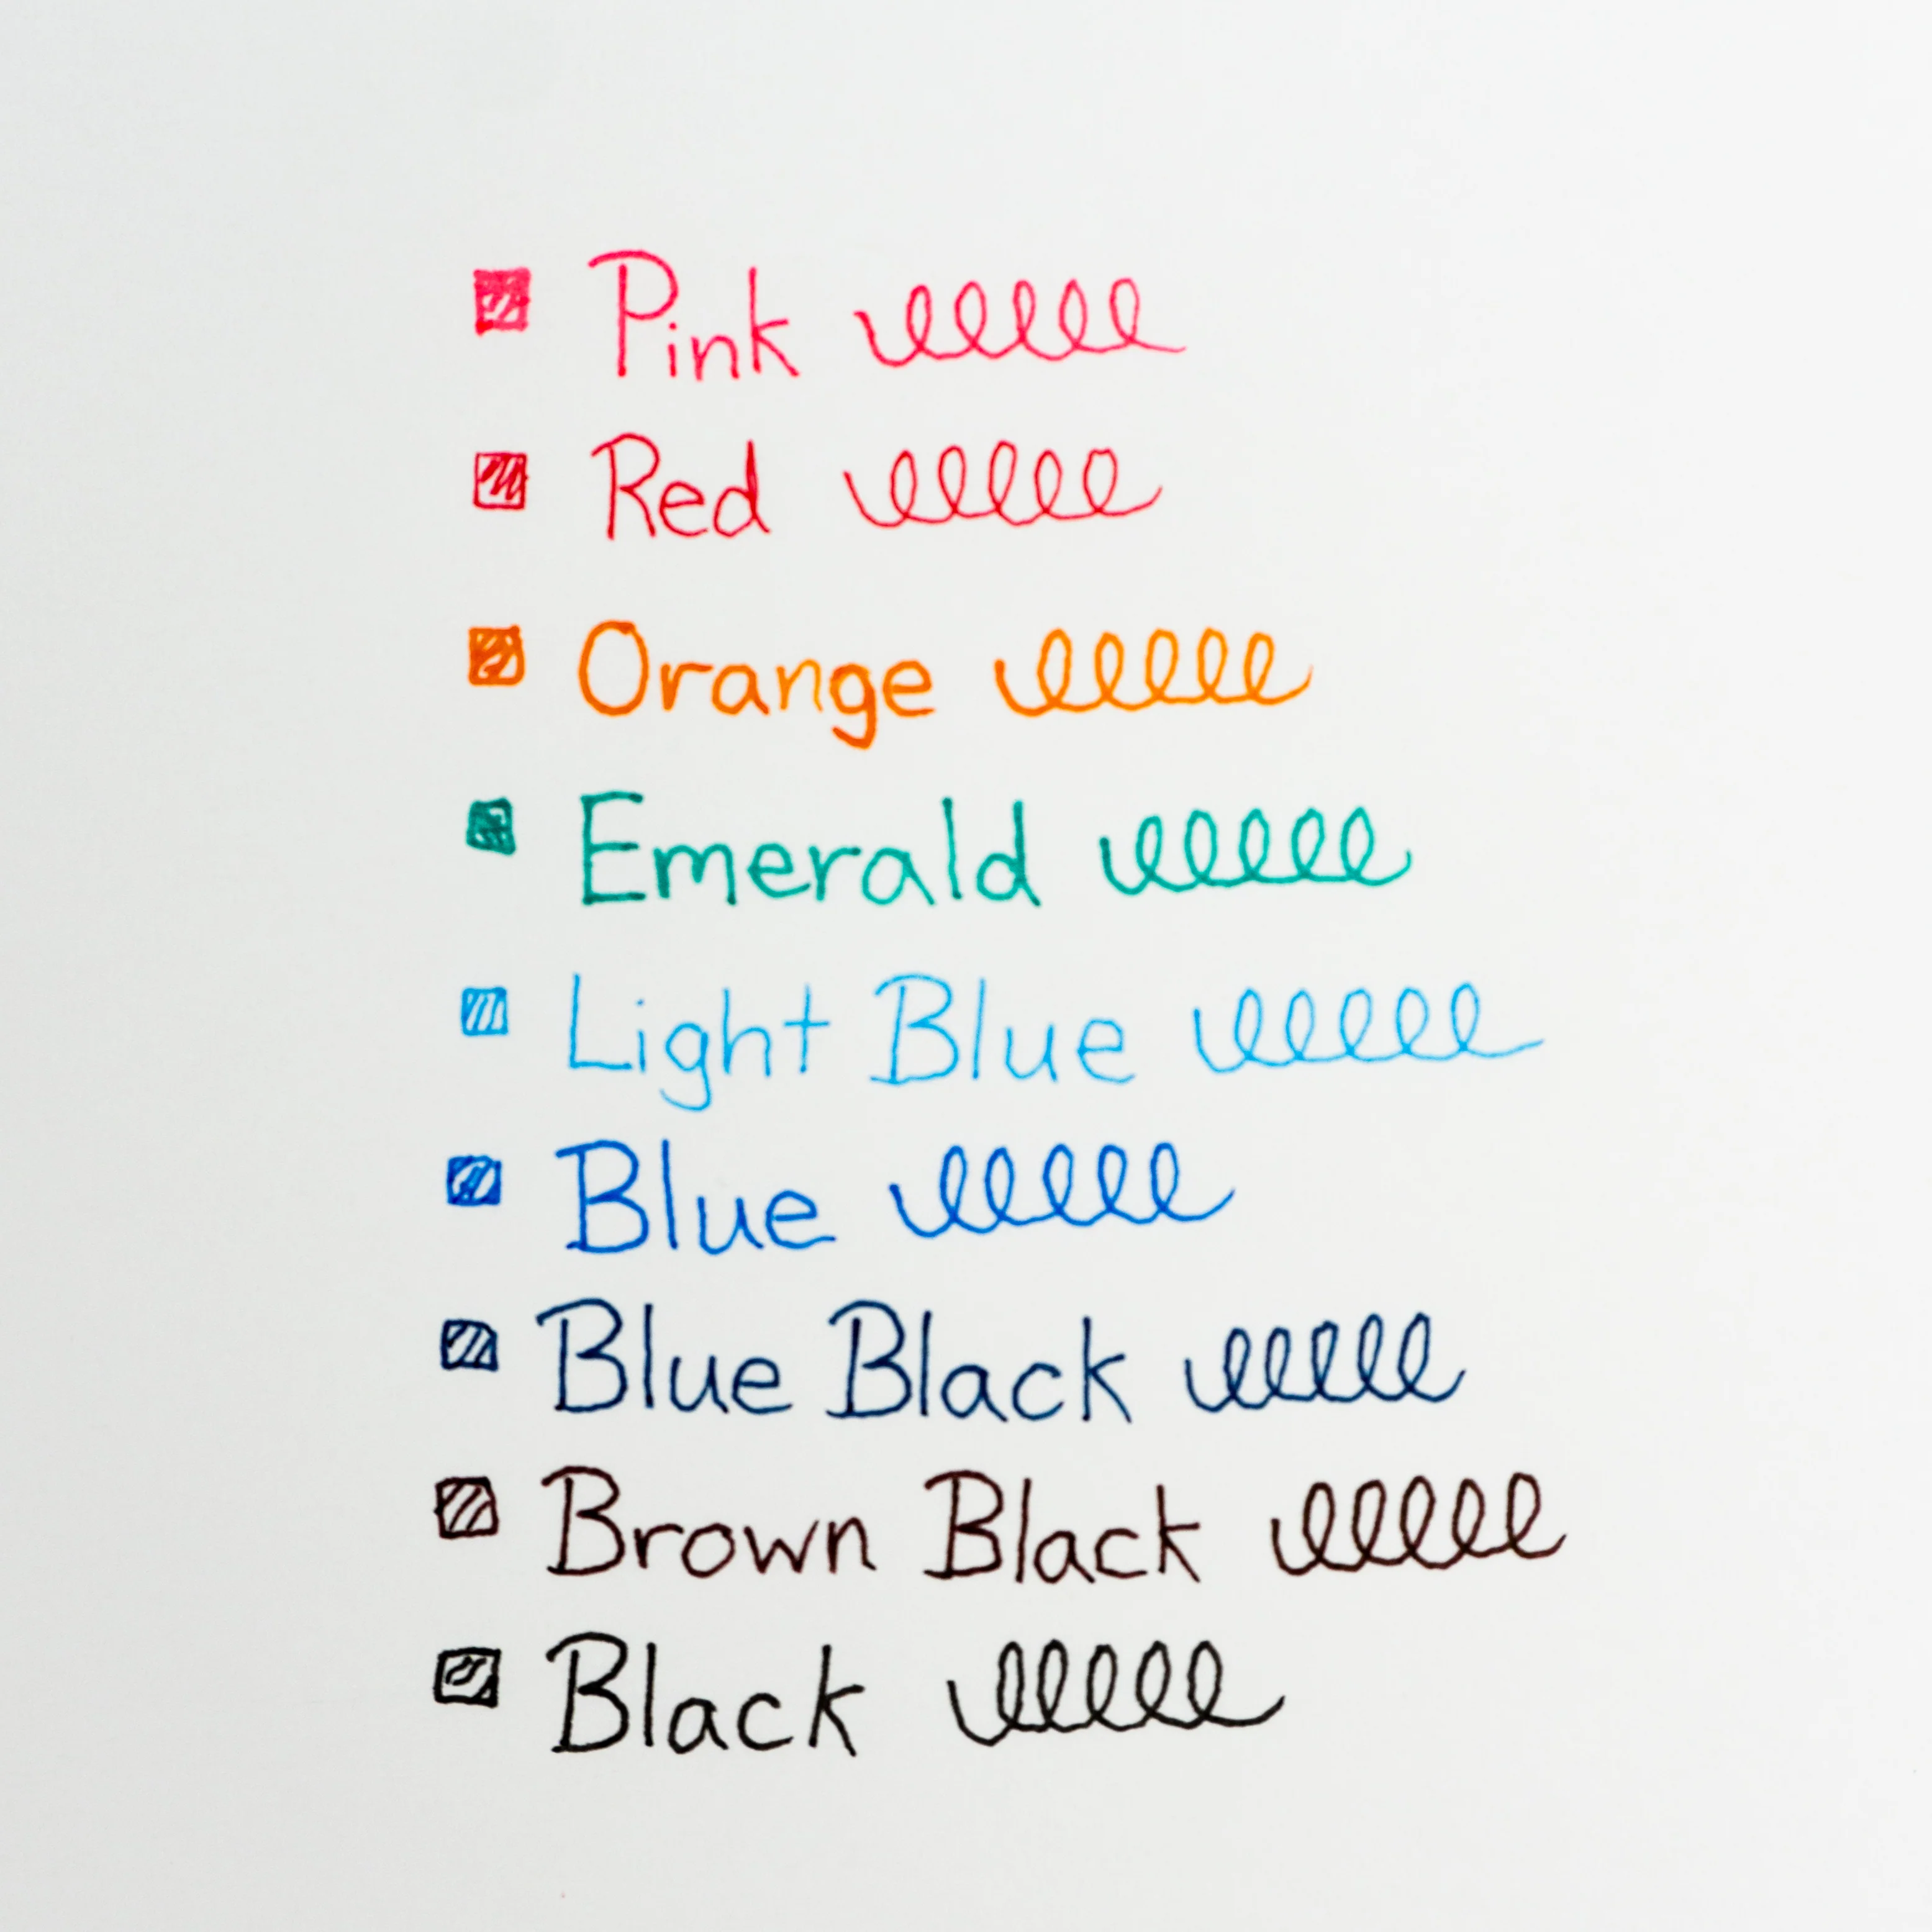 Pink
Red
Orange
Emerald
Light Blue
Blue
Blue Black
Brown Black
Black